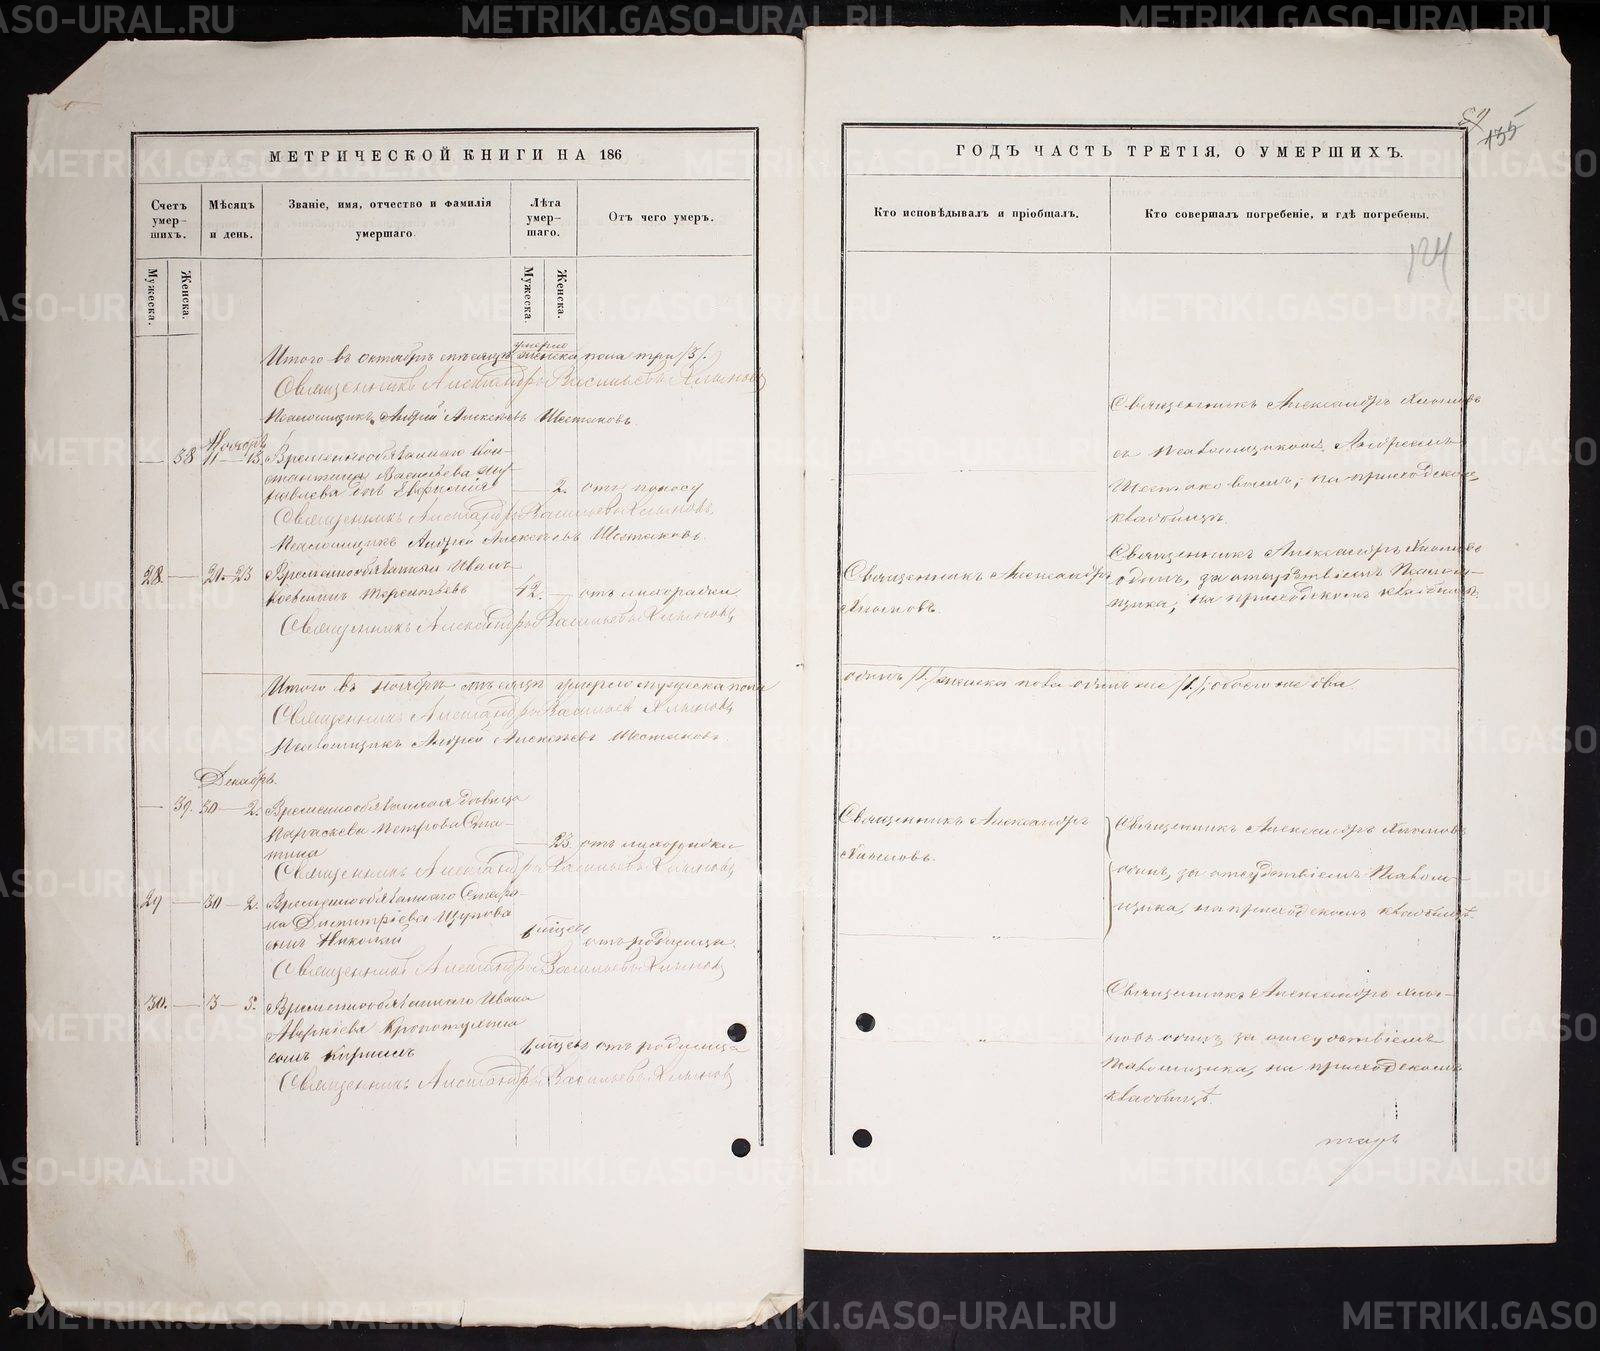 МЕТРИЧЕСКОЙ КНИГИ НА 186
Счетъ умер- шихъ.
Мѣсяцъ и день.
Званіе, имя, отчество и фамилія умершаго.
Лѣта умер- шаго.
Отъ чего умеръ.
Мужеска.
Женска.
Мужеска.
Женска.
умерло
Итого въ октябрѣ мѣсяцѣ женска пола три /3/.
Священникъ Александръ Васильевъ Хлыновъ
Псаломщикъ Андрей Алексѣевъ Шестаковъ
Ноябрь
— 38 11—13 Временнообязаннаго Кон-
стантина Васильева
дочь Евфимія — 2. отъ поносу
Священникъ Александръ Васильевъ Хлыновъ
Псаломщикъ Андрей Алексѣевъ Шестаковъ.
28 — 21—23 Временнообязанный Иванъ
Терентьевъ 42. — отъ лихорадки
Священникъ Александръ Васильевъ Хлыновъ
Итого въ ноябрѣ мѣсяцѣ умерло мужеска пола
Священникъ Александръ Васильевъ Хлыновъ
Псаломщикъ Андрей Алексѣевъ Шестаковъ.
Декабрь.
— 39. 30—2. Временнообязанная дѣвица
Параскева Петрова
— 23. отъ лихорадки
Священникъ Александръ Васильевъ Хлыновъ
29 — 30—2. Временнообязаннаго Стефа-
на Димитріева Щупова
сынъ Николай отъ родимца.
Священникъ Александръ Васильевъ Хлыновъ
30. — 3—5. Временнообязаннаго Ивана
Аверкіева Кропотухина
сынъ Кириллъ отъ родимца
Священникъ Александръ Васильевъ Хлыновъ
135
ГОДЪ ЧАСТЬ ТРЕТІЯ, О УМЕРШИХЪ.
Кто исповѣдывалъ и пріобщалъ.
Кто совершалъ погребеніе, и гдѣ погребены.
124
Священникъ Александръ Хлыновъ
съ Псаломщикомъ Андреемъ
Шестаковымъ, на приходскомъ
кладбищѣ.
Священникъ Александръ
Хлыновъ.
Священникъ Александръ Хлыновъ
одинъ, за отсутствіемъ Псалом-
щика, на приходскомъ кладбищѣ.
одинъ /1/ женска пола одинъ же /1/, обоего же два.
Священникъ Александръ
Хлыновъ.
Священникъ Александръ Хлыновъ
одинъ, за отсутствіемъ Псалом-
щика, на приходскомъ кладбищѣ.
Священникъ Александръ Хлы-
новъ одинъ за отсутствіемъ
Псаломщика, на приходскомъ
кладбищѣ.
METRIKI.GASO-URAL.RU